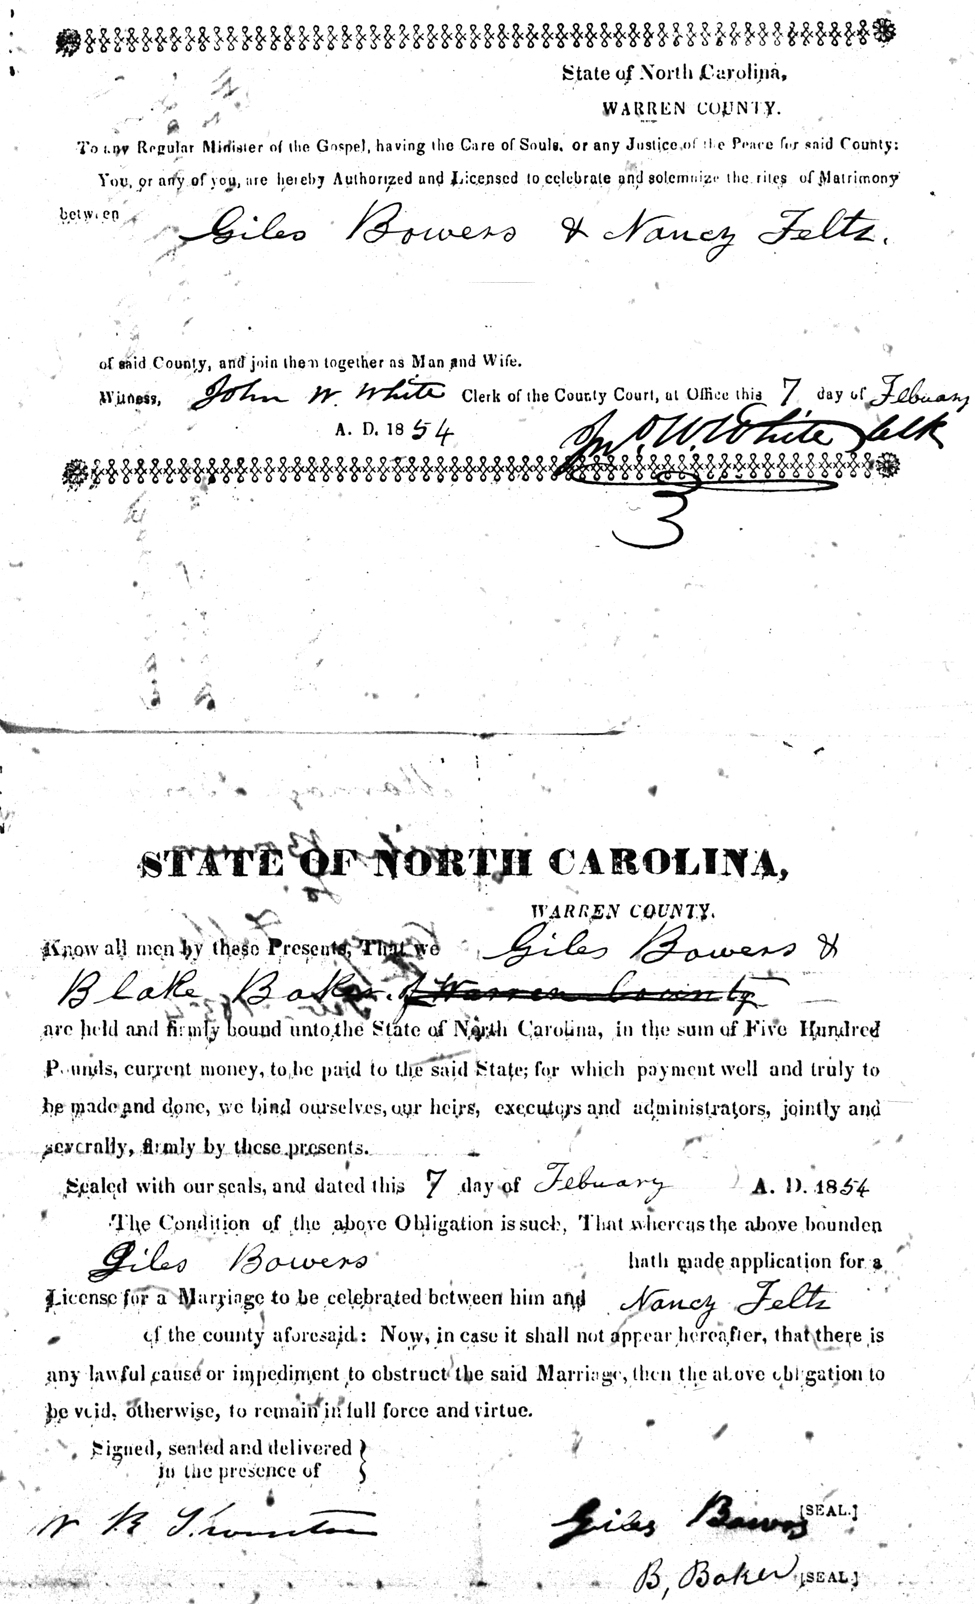 State of North Carolina,
WARREN COUNTY.
To any Regular Minister of the Gospel, having the Care of Souls, or any Justice of the Peace for said County:
You, or any of you, are hereby Authorized and Licensed to celebrate and solemnize the rites of Matrimony
between
Giles Bowers & Nancy Felts.
of said County, and join them together as Man and Wife.
Witness, John W. White Clerk of the County Court, at Office this 7 day of Febuary
A. D. 1854
Jno. W. White Clk
3
STATE OF NORTH CAROLINA,
WARREN COUNTY.
Know all men by these Presents, That we Giles Bowers &
Blake Baker of Warren County
are held and firmly bound unto the State of North Carolina, in the sum of Five Hundred
Pounds, current money, to be paid to the said State; for which payment well and truly to
be made and done, we bind ourselves, our heirs, executers and administrators, jointly and
severally, firmly by these presents.
Sealed with our seals, and dated this 7 day of Febuary A. D. 1854
The Condition of the above Obligation is such, That whereas the above bounden
Giles Bowers hath made application for a
License for a Marriage to be celebrated between him and Nancy Felts
of the county aforesaid: Now, in case it shall not appear hereafter, that there is
any lawful cause or impediment to obstruct the said Marriage, then the above obligation to
be void, otherwise, to remain in full force and virtue.
Signed, sealed and delivered
in the presence of
Giles Bowers [SEAL.]
B, Baker [SEAL.]